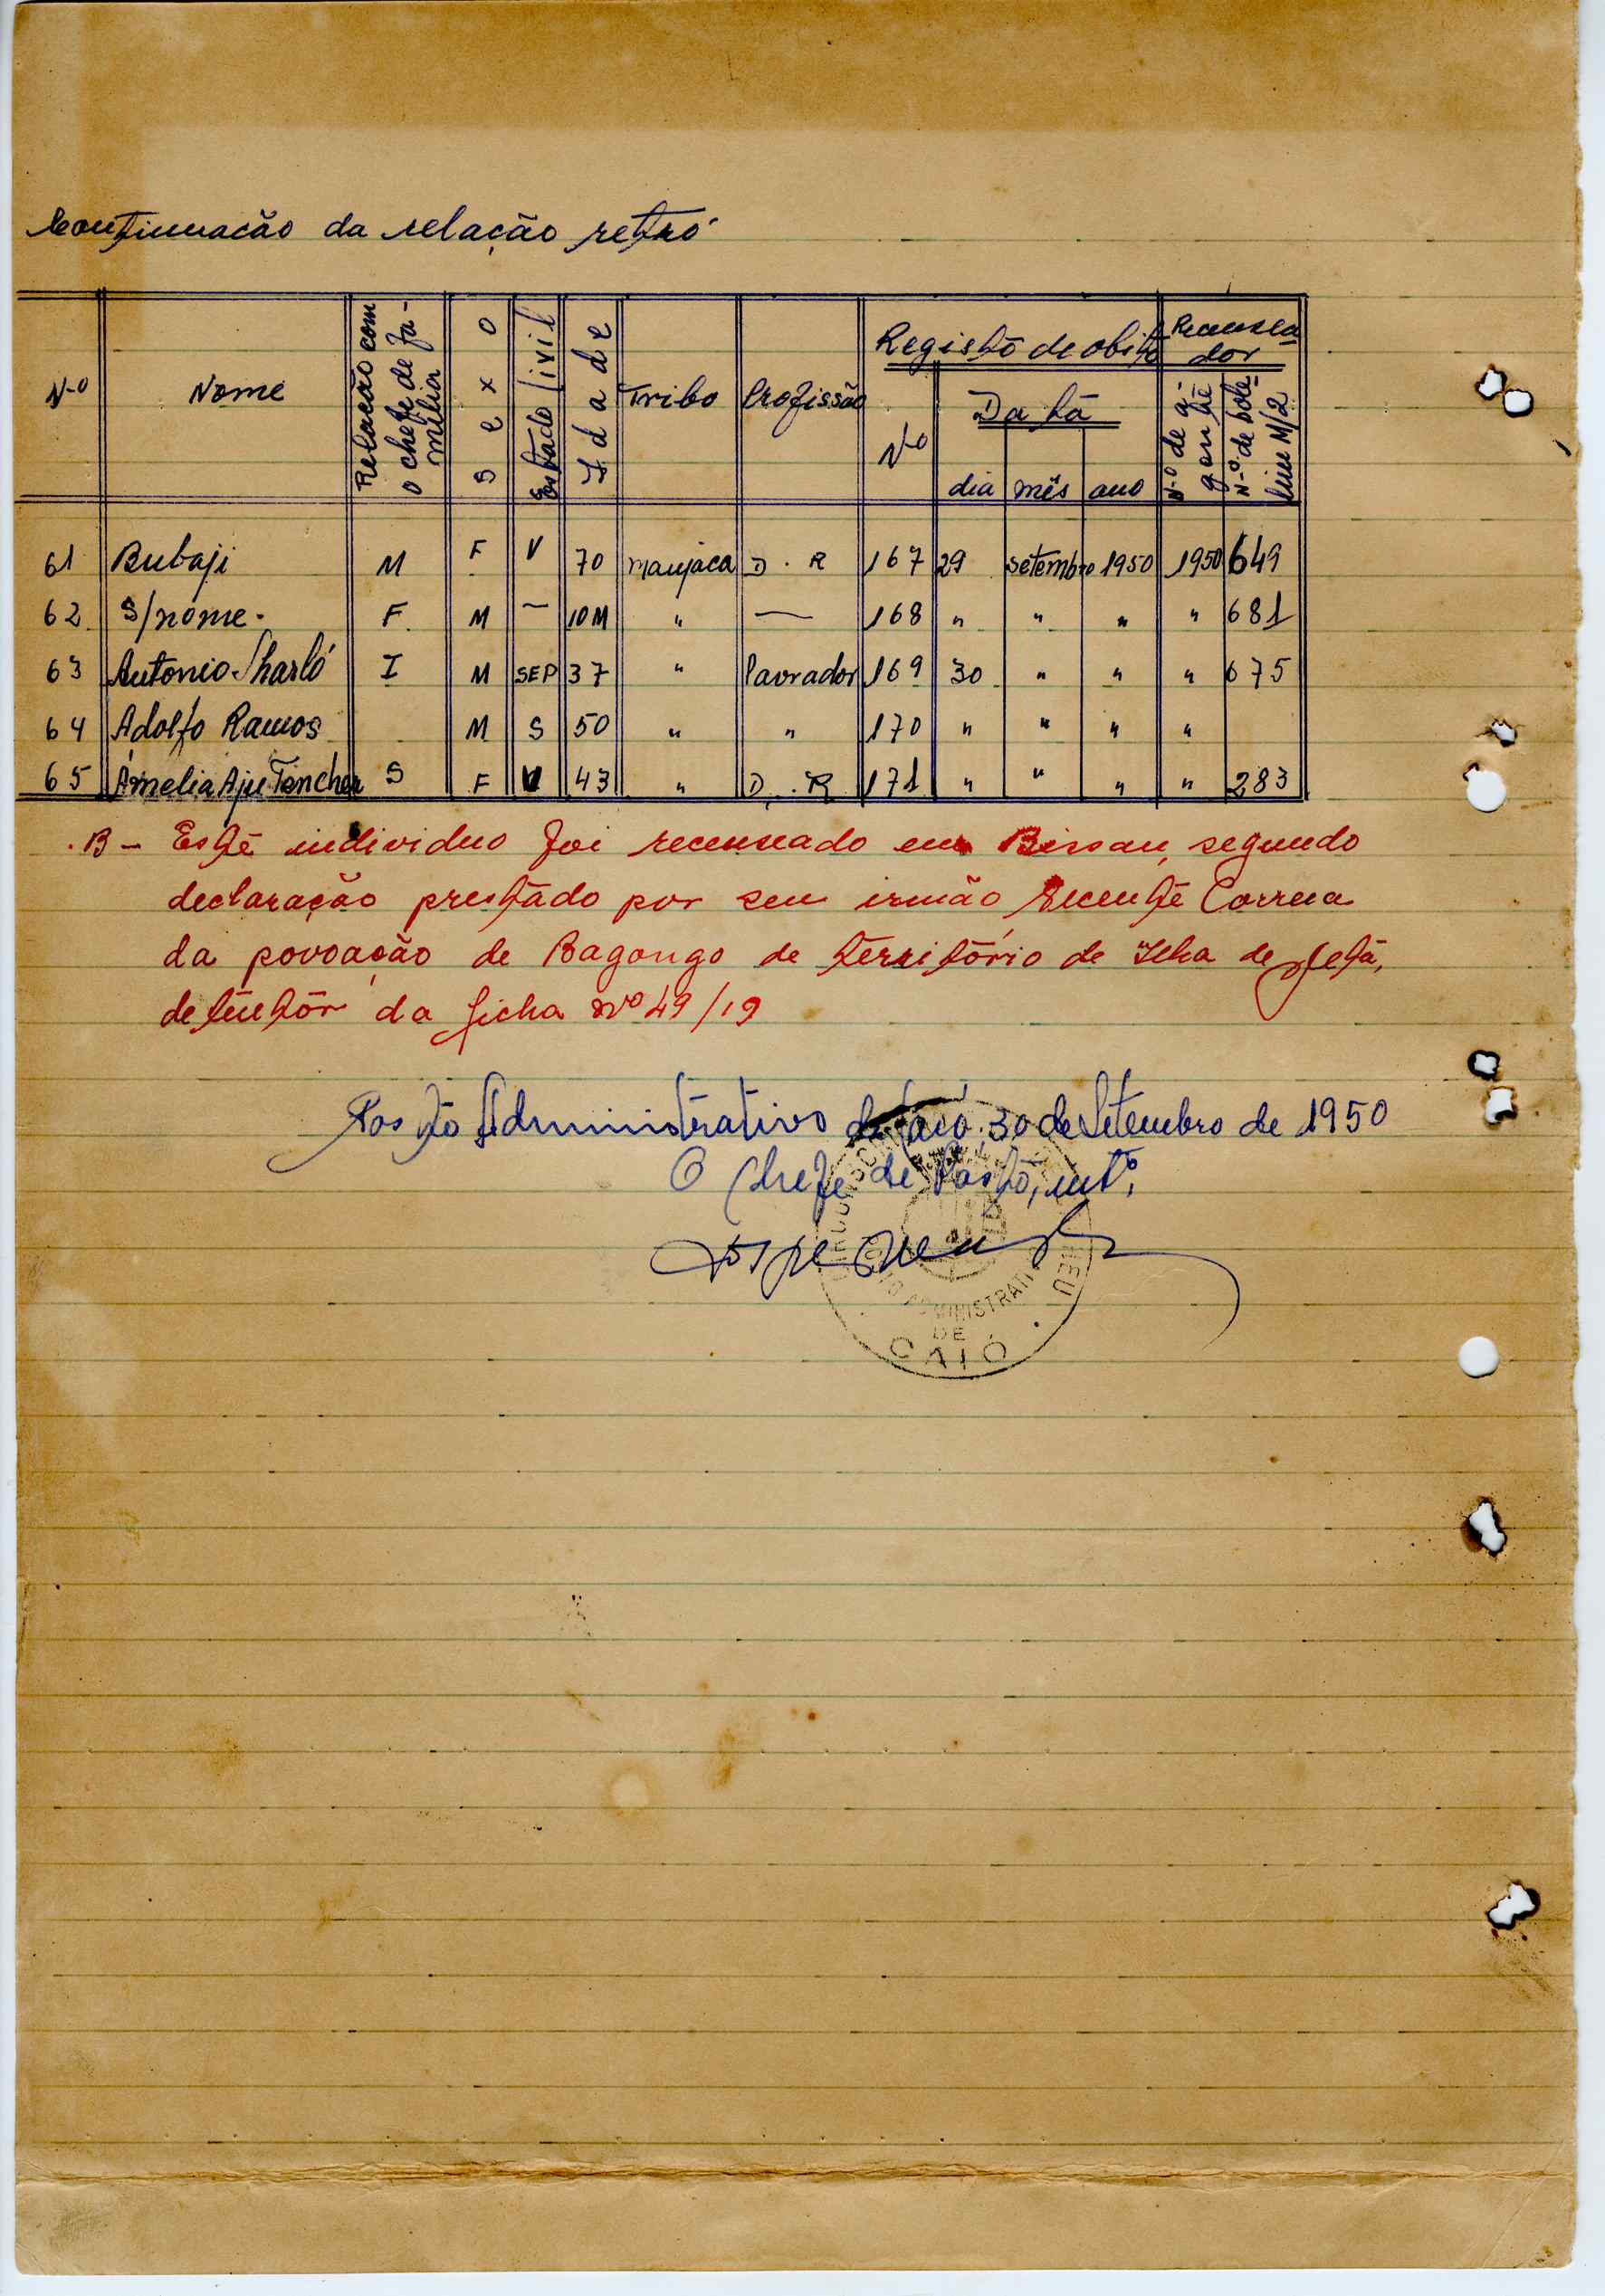 Continuacão da relação retró
N-o Nome Relacão com o chefe de família Sexo Estado Civil Idade Tribo Profissão Registo de obito Recenseador
Nº Data Nº de gente Nº de boletim M/2
dia mês ano
61 Bubaji M F V 70 manjaca D. R 167 29 setembro 1950 1950 649
62 S/nome. F M — 10M " — 168 " " " " 681
63 Antonio Sharló I M SEP 37 " lavrador 169 30 " " " 675
64 Adolfo Ramos M S 50 " " 170 " " " "
65 Amelia Aju Tencher S F V 43 " D. R 171 " " " " 283
.B - Este individuo foi recenseado em Bissau, segundo
declaração prestado por seu irmão Correia
da povoação de Bagongo de território de Ilha de Jeta,
detentôr da ficha nº 49/19
Posto Administrativo de Caió, 30 de Setembro de 1950
O Chefe de Posto, intº,
ADMINISTRATI
DE
CAIÓ